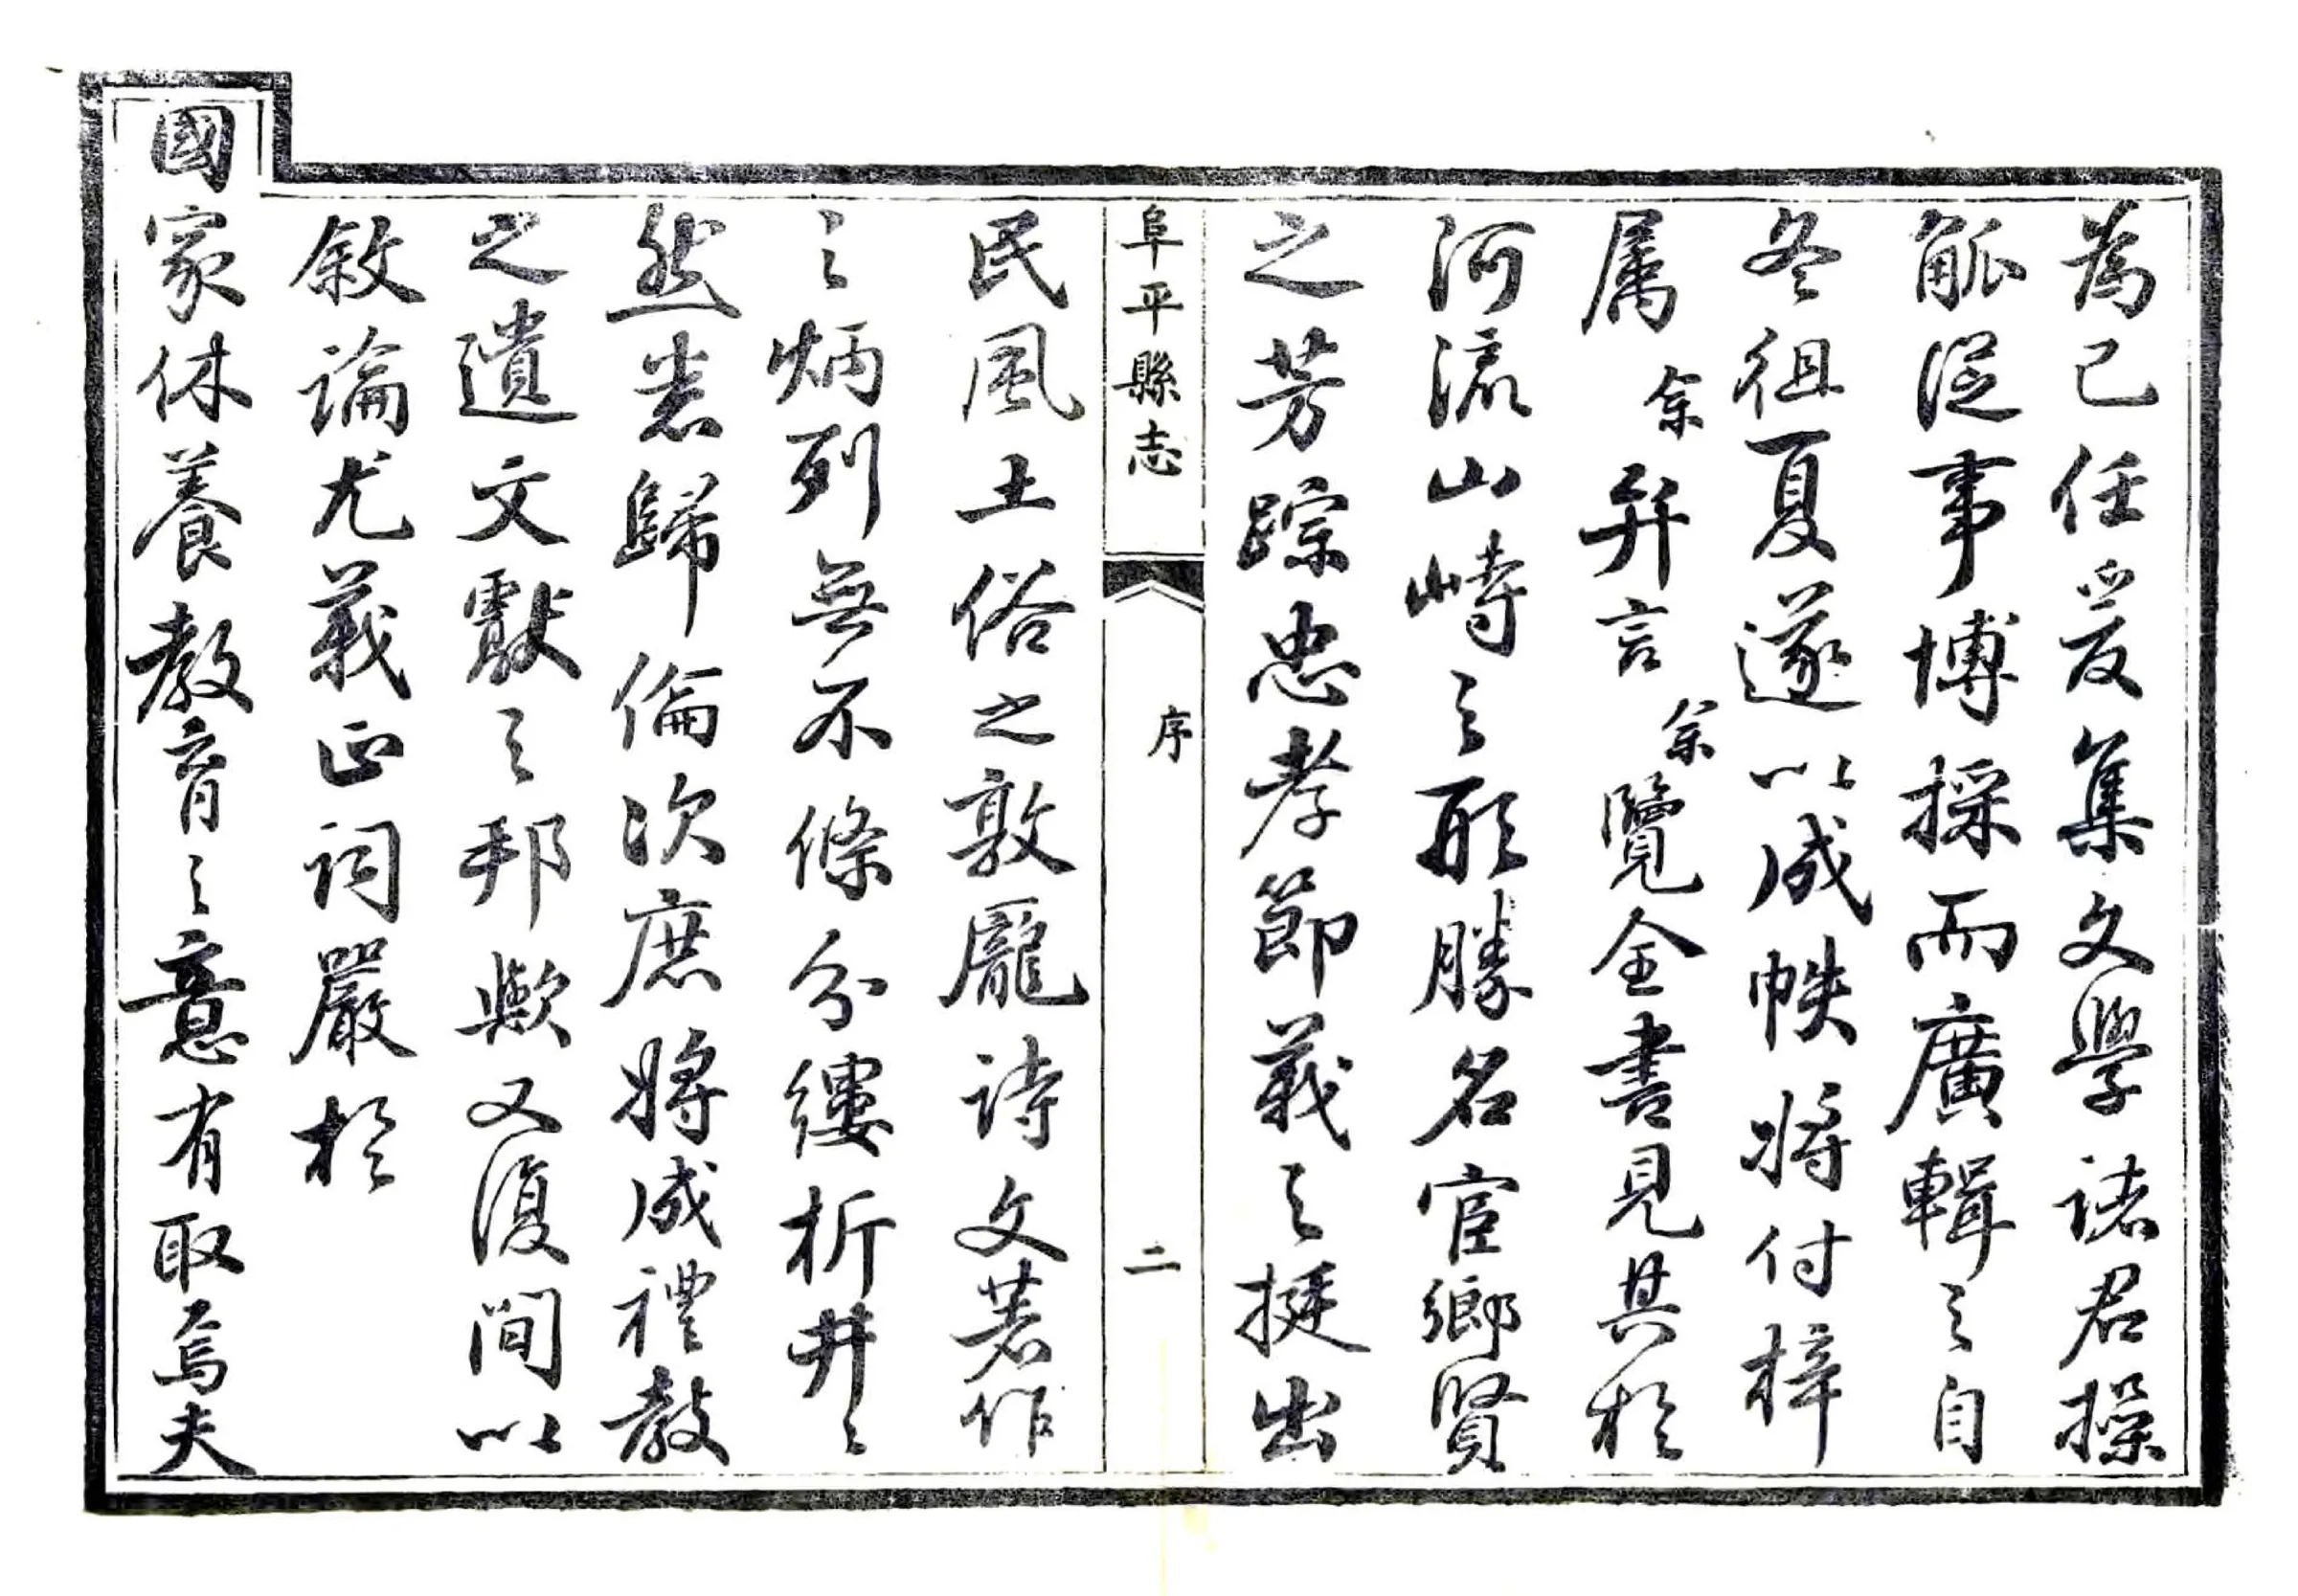 為已任爰集文學諸君操
觚從事博採而廣輯之自
冬徂夏遂以成帙將付梓
属余弁言余覽全書見其於
河流山峙之形勝名宦鄉賢
之芳踪忠孝節義之挺出
阜平縣志
序
二
民風土俗之敦龐詩文著作
之炳列無不條分縷析井〻
然悉歸倫次庶將成禮教
之遺文獻之邦歟又復間以
敘論尤義正詞嚴於
國家休養教育之意有取焉夫